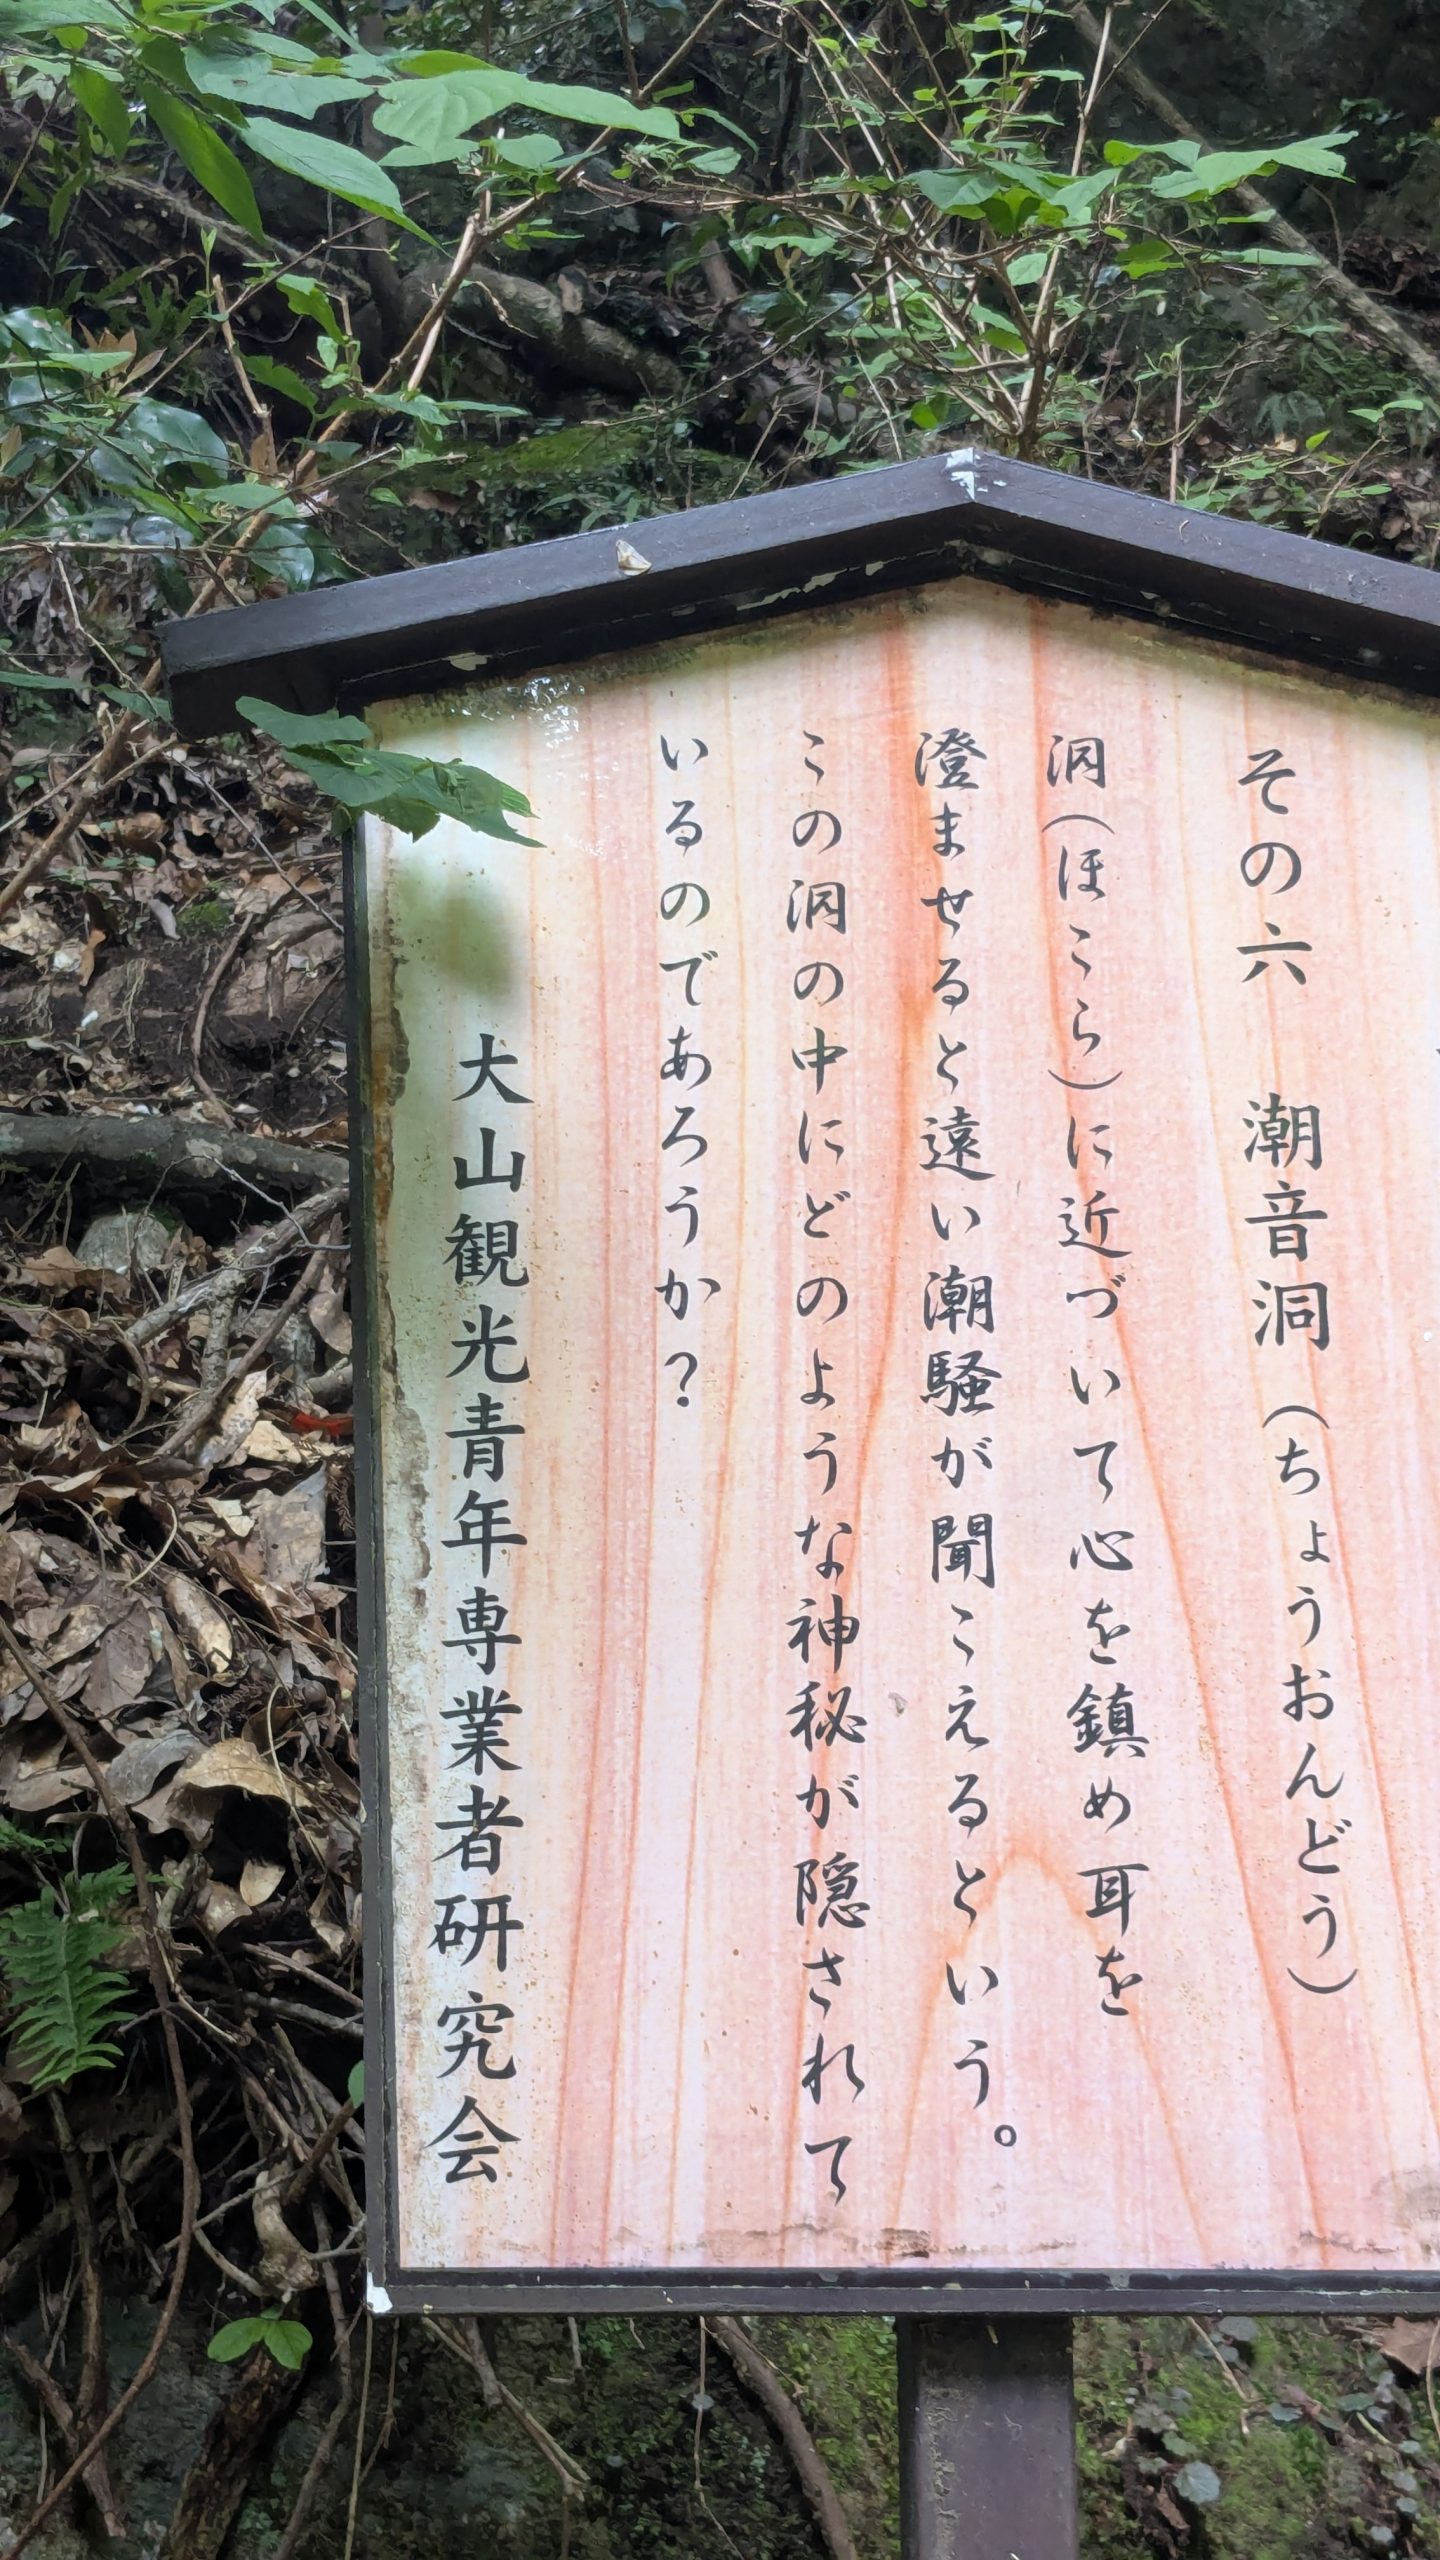 その六　潮音洞（ちょうおんどう）
洞（ほこら）に近づいて心を鎮め耳を
澄ませると遠い潮騒が聞こえるという。
この洞の中にどのような神秘が隠されて
いるのであろうか？
大山観光青年専業者研究会